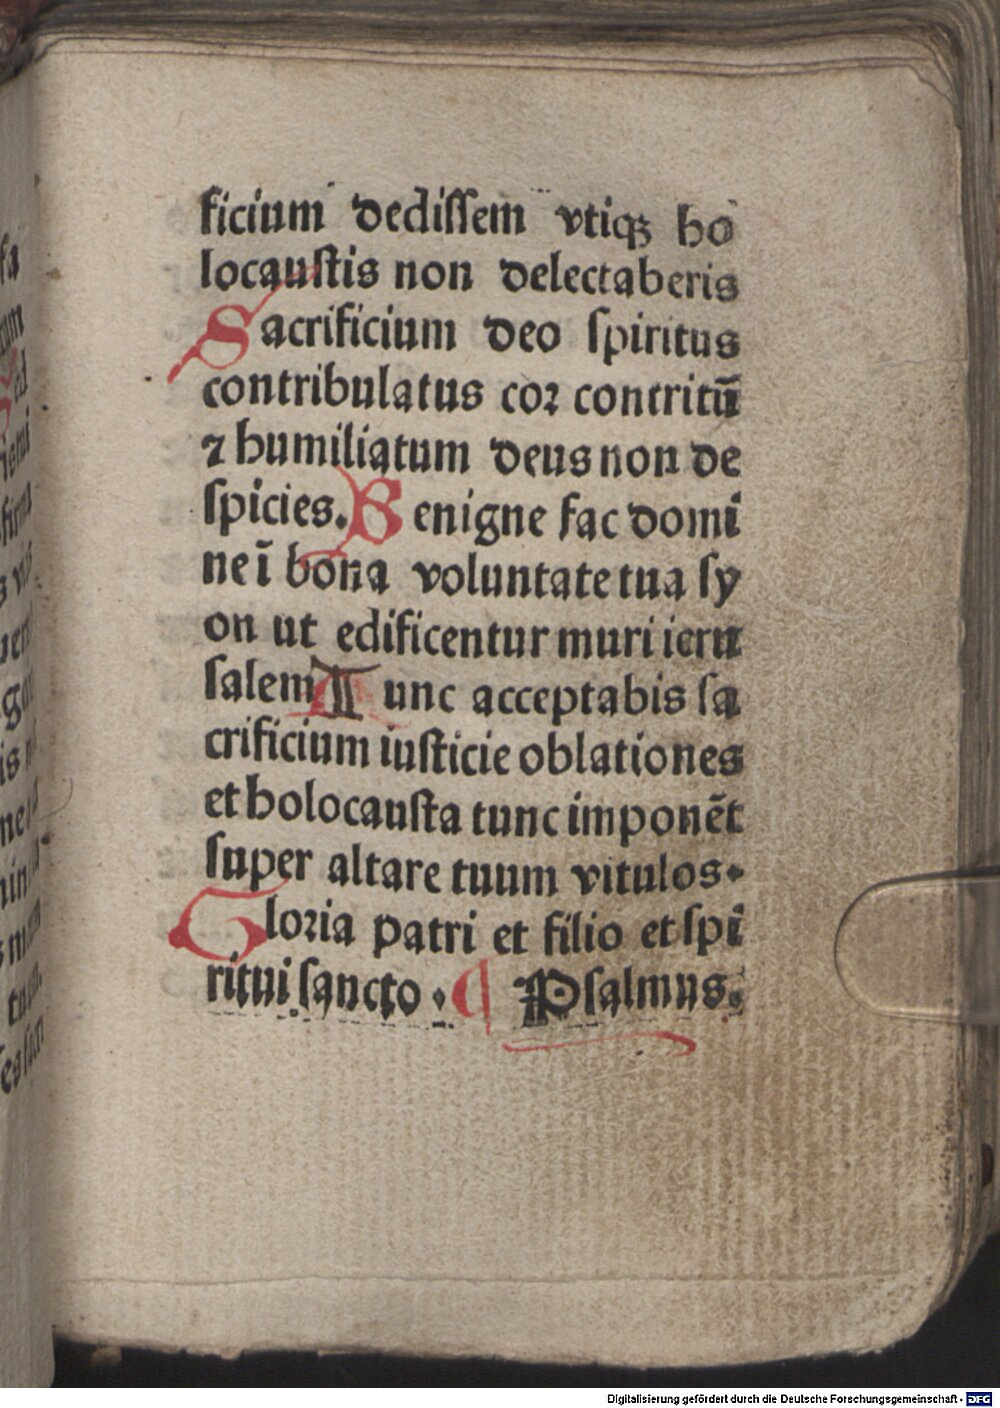 ficium dedissem vtiqꝫ ho
locaustis non delectaberis
Sacrificium deo spiritus
contribulatus cor contritū
⁊ humiliatum deus non de
spicies. Benigne fac domi
ne ī bona voluntate tua sy
on ut edificentur muri ieru
salem Tunc acceptabis sa
crificium iusticie oblationes
et holocausta tunc imponēt
super altare tuum vitulos.
Gloria patri et filio et spi
ritui sancto. ¶ Psalmus.
Digitalisierung gefördert durch die Deutsche Forschungsgemeinschaft - DFG